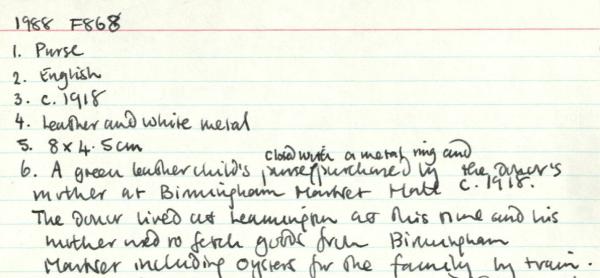 1988 F868
1. Purse
2. English
3. c. 1918
4. Leather and white metal
5. 8 x 4.5cm
closed with a metal ring and
6. A green leather child's purse purchased by the Donor's
mother at Birmingham Market Hall c. 1918.
The Donor lived at Leamington at this time and his
mother used to fetch goods from Birmingham
Market including oysters for the family by train.